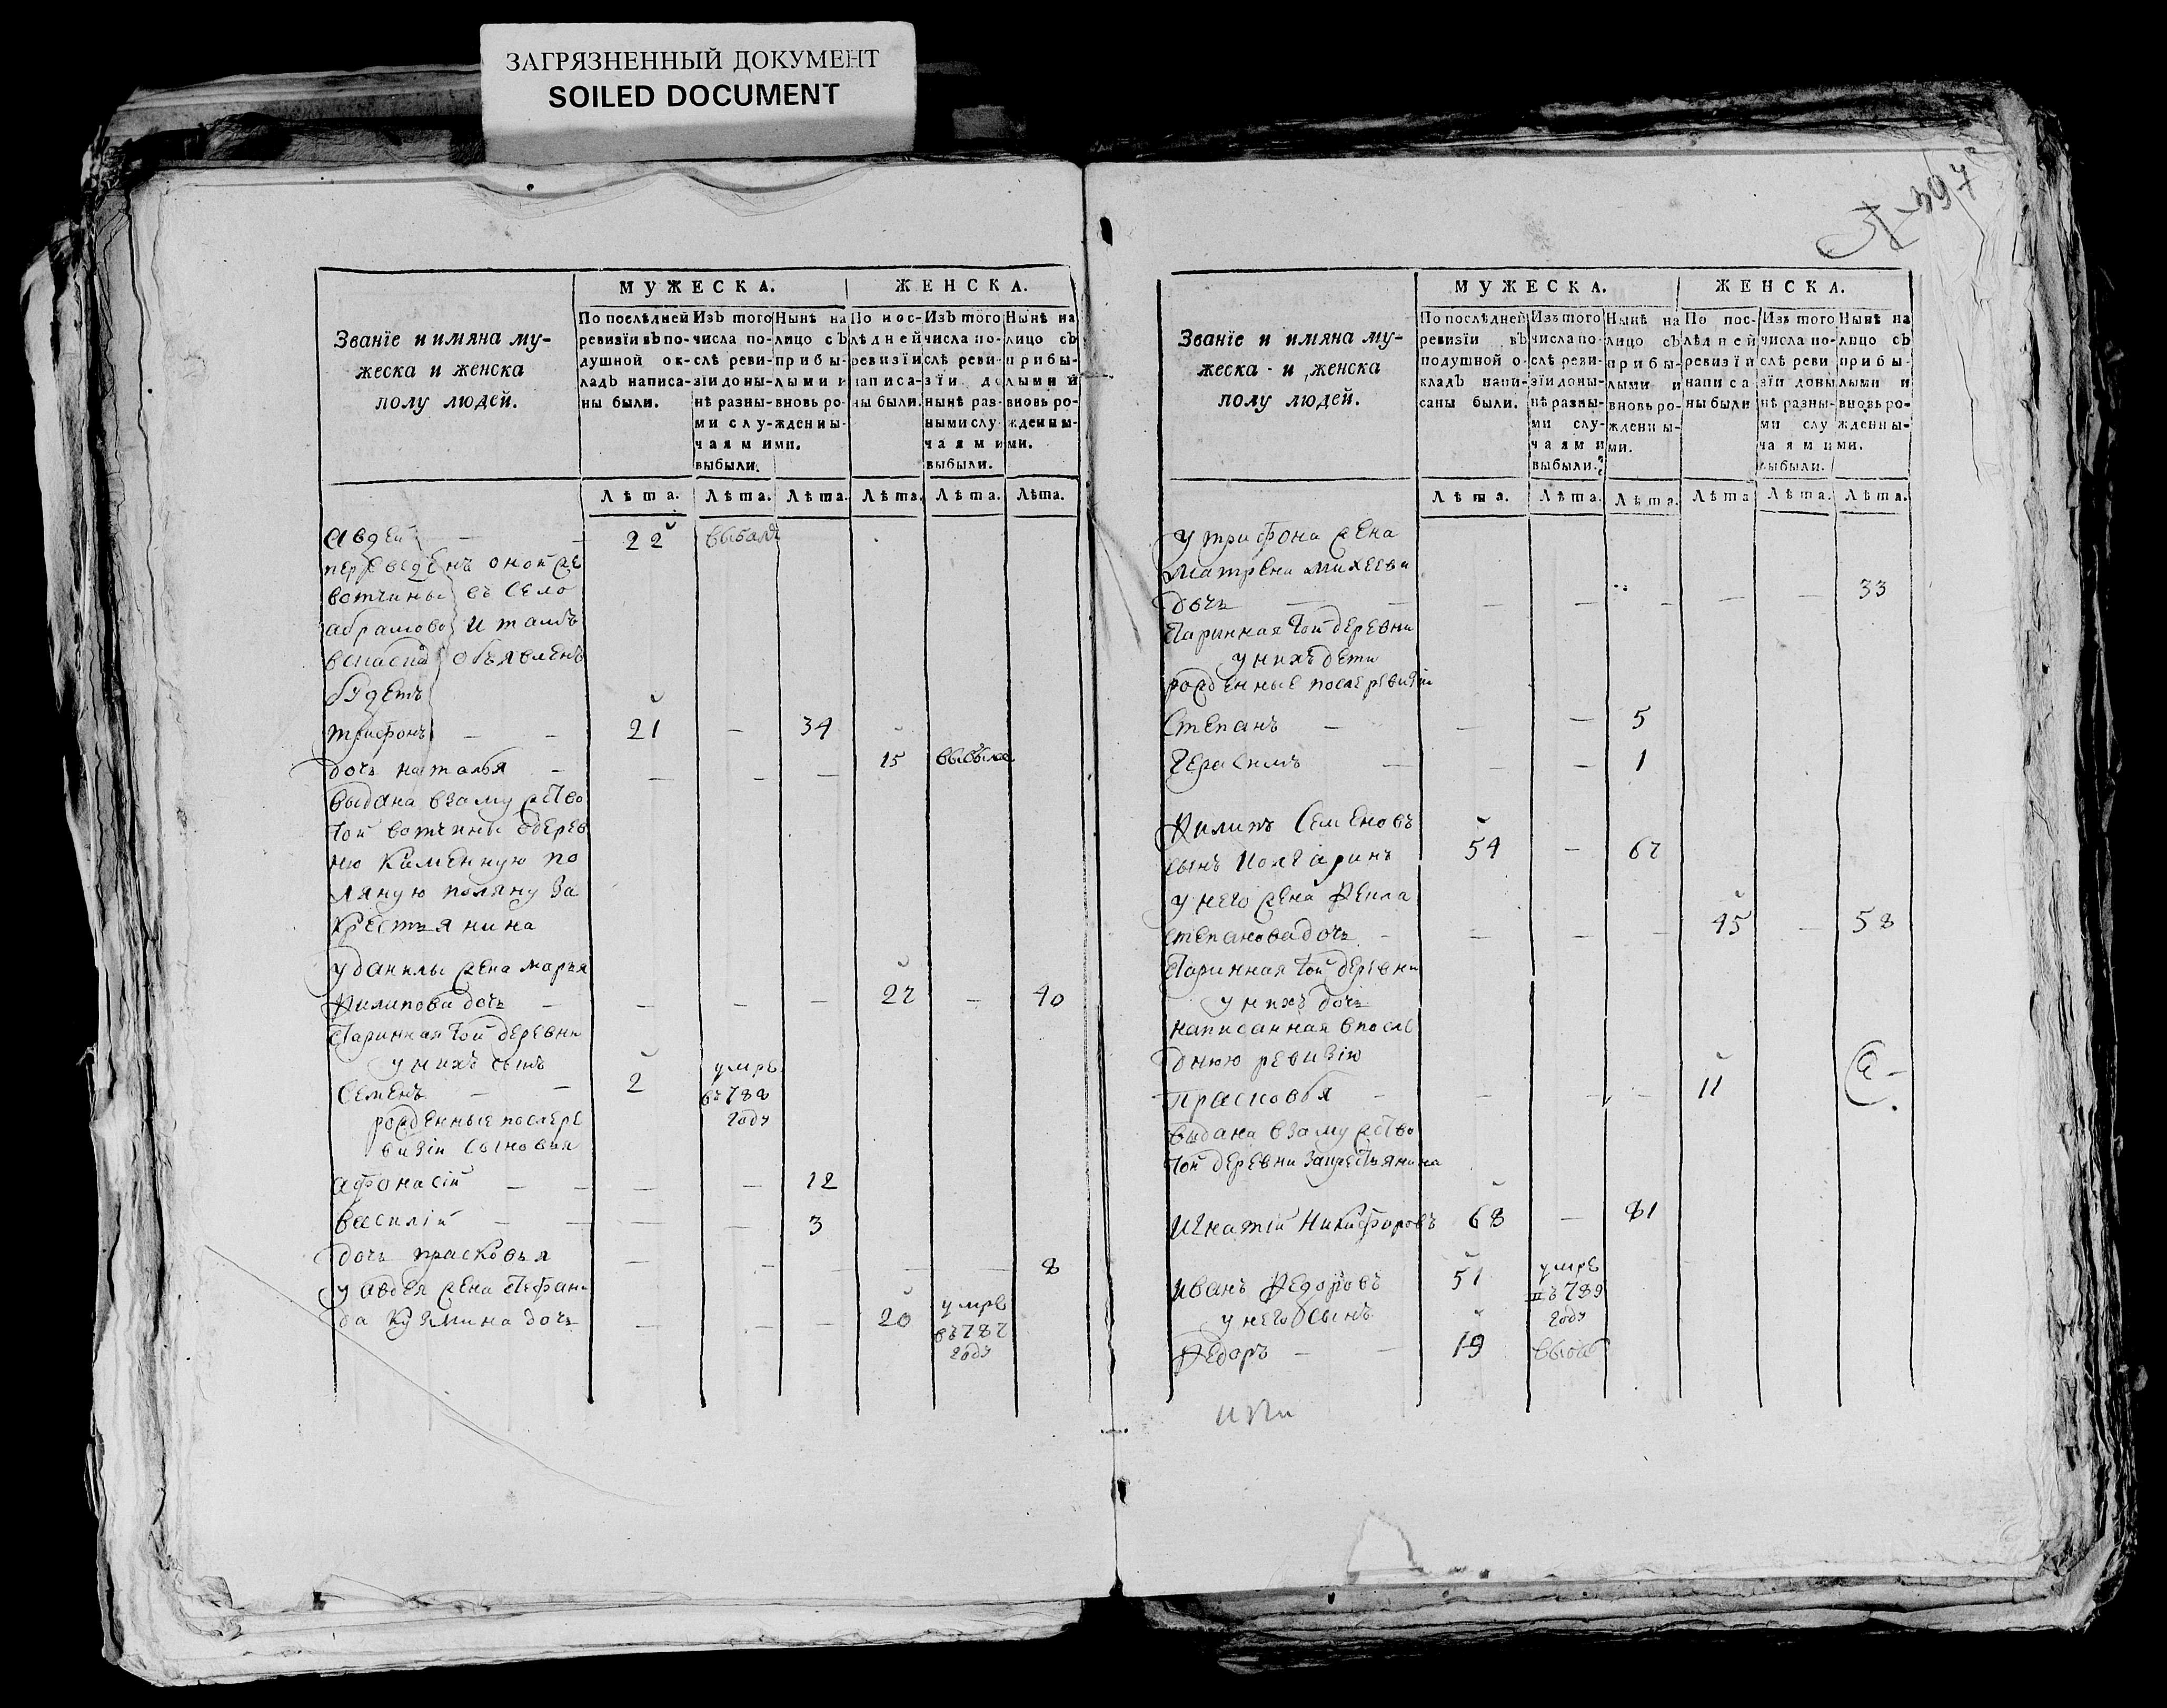 ЗАГРЯЗНЕННЫЙ ДОКУМЕНТ
SOILED DOCUMENT
МУЖЕСКА. ЖЕНСКА.
Званїе и имяна му-
жеска и женска
полу людей.
По послѣдней ревизїи въ по-душной ок-ладъ написа-ны были.
Изъ того числа по-слѣ реви-зїи до ны-нѣ разны-ми слу-чаями выбыли.
Нынѣ на лицо съ прибы-лыми и вновь ро-жденны-ми.
По пос-лѣдней ревизїи написа-ны были.
Изъ того числа по-слѣ реви-зїи до нынѣ раз-ными слу-чаями выбыли.
Нынѣ на лицо съ прибы-лыми и вновь ро-жденны-ми.
Лѣта. Лѣта. Лѣта. Лѣта. Лѣта. Лѣта.
авдей — 22 выбылъ
переведенъ оной же
вотчины въ село
абрамово и тамъ
объявленъ
будетъ
трифонъ — — 21 — 34
дочь наталья — — — — 15 выбыла
выдана взамужство
той вотчины вдерев
ню Каменную по
ляную поляну за
крестьянина
у данилы жена марья
Филипова дочь — — — — 27 — 40
старинная той деревни
у нихъ сынъ
Семенъ — — 2 умре въ 788 году
рожденные послере
визіи сыновья
афонасій — — — — 12
василій — — — — 3
дочь прасковья — — — — — 8
у авдея жена стефани
да кузмина дочь — — — 20 умре въ 787 году
МУЖЕСКА. ЖЕНСКА.
Званїе и имяна му-
жеска и женска
полу людей.
По послѣдней ревизїи въ подушной о-кладъ напи-саны были.
Изъ того числа по-слѣ реви-зїи до ны-нѣ разны-ми слу-чаями выбыли.
Нынѣ на лицо съ прибы-лыми и вновь ро-жденны-ми.
По пос-лѣдней ревизїи написа-ны были
Изъ того числа по-слѣ реви-зїи до ны-нѣ разны-ми слу-чаями выбыли.
Нынѣ на лицо съ прибы-лыми и вновь ро-жденны-ми.
Лѣта. Лѣта. Лѣта. Лѣта Лѣта. Лѣта.
у трифона жена
Матрена михеева
дочь — — — — — — — 33
старинная той деревни
у нихъ дети
рожденные послеревизіи
Степанъ — — — 5
Герасимъ — — — 1
Филипъ Семеновъ
сынъ 54 — 67
у него жена Фекла
степанова дочь — — — — 45 — 58
старинная той деревни
у нихъ дочь
написанная в после
днюю ревизію
прасковья — — — — 11
выдана взамужство
той деревни закрестьянина
игнатій Никифоровъ 68 — 81
иванъ Федоровъ 51 умре въ 789 году
у него сынъ
Федоръ — — 19